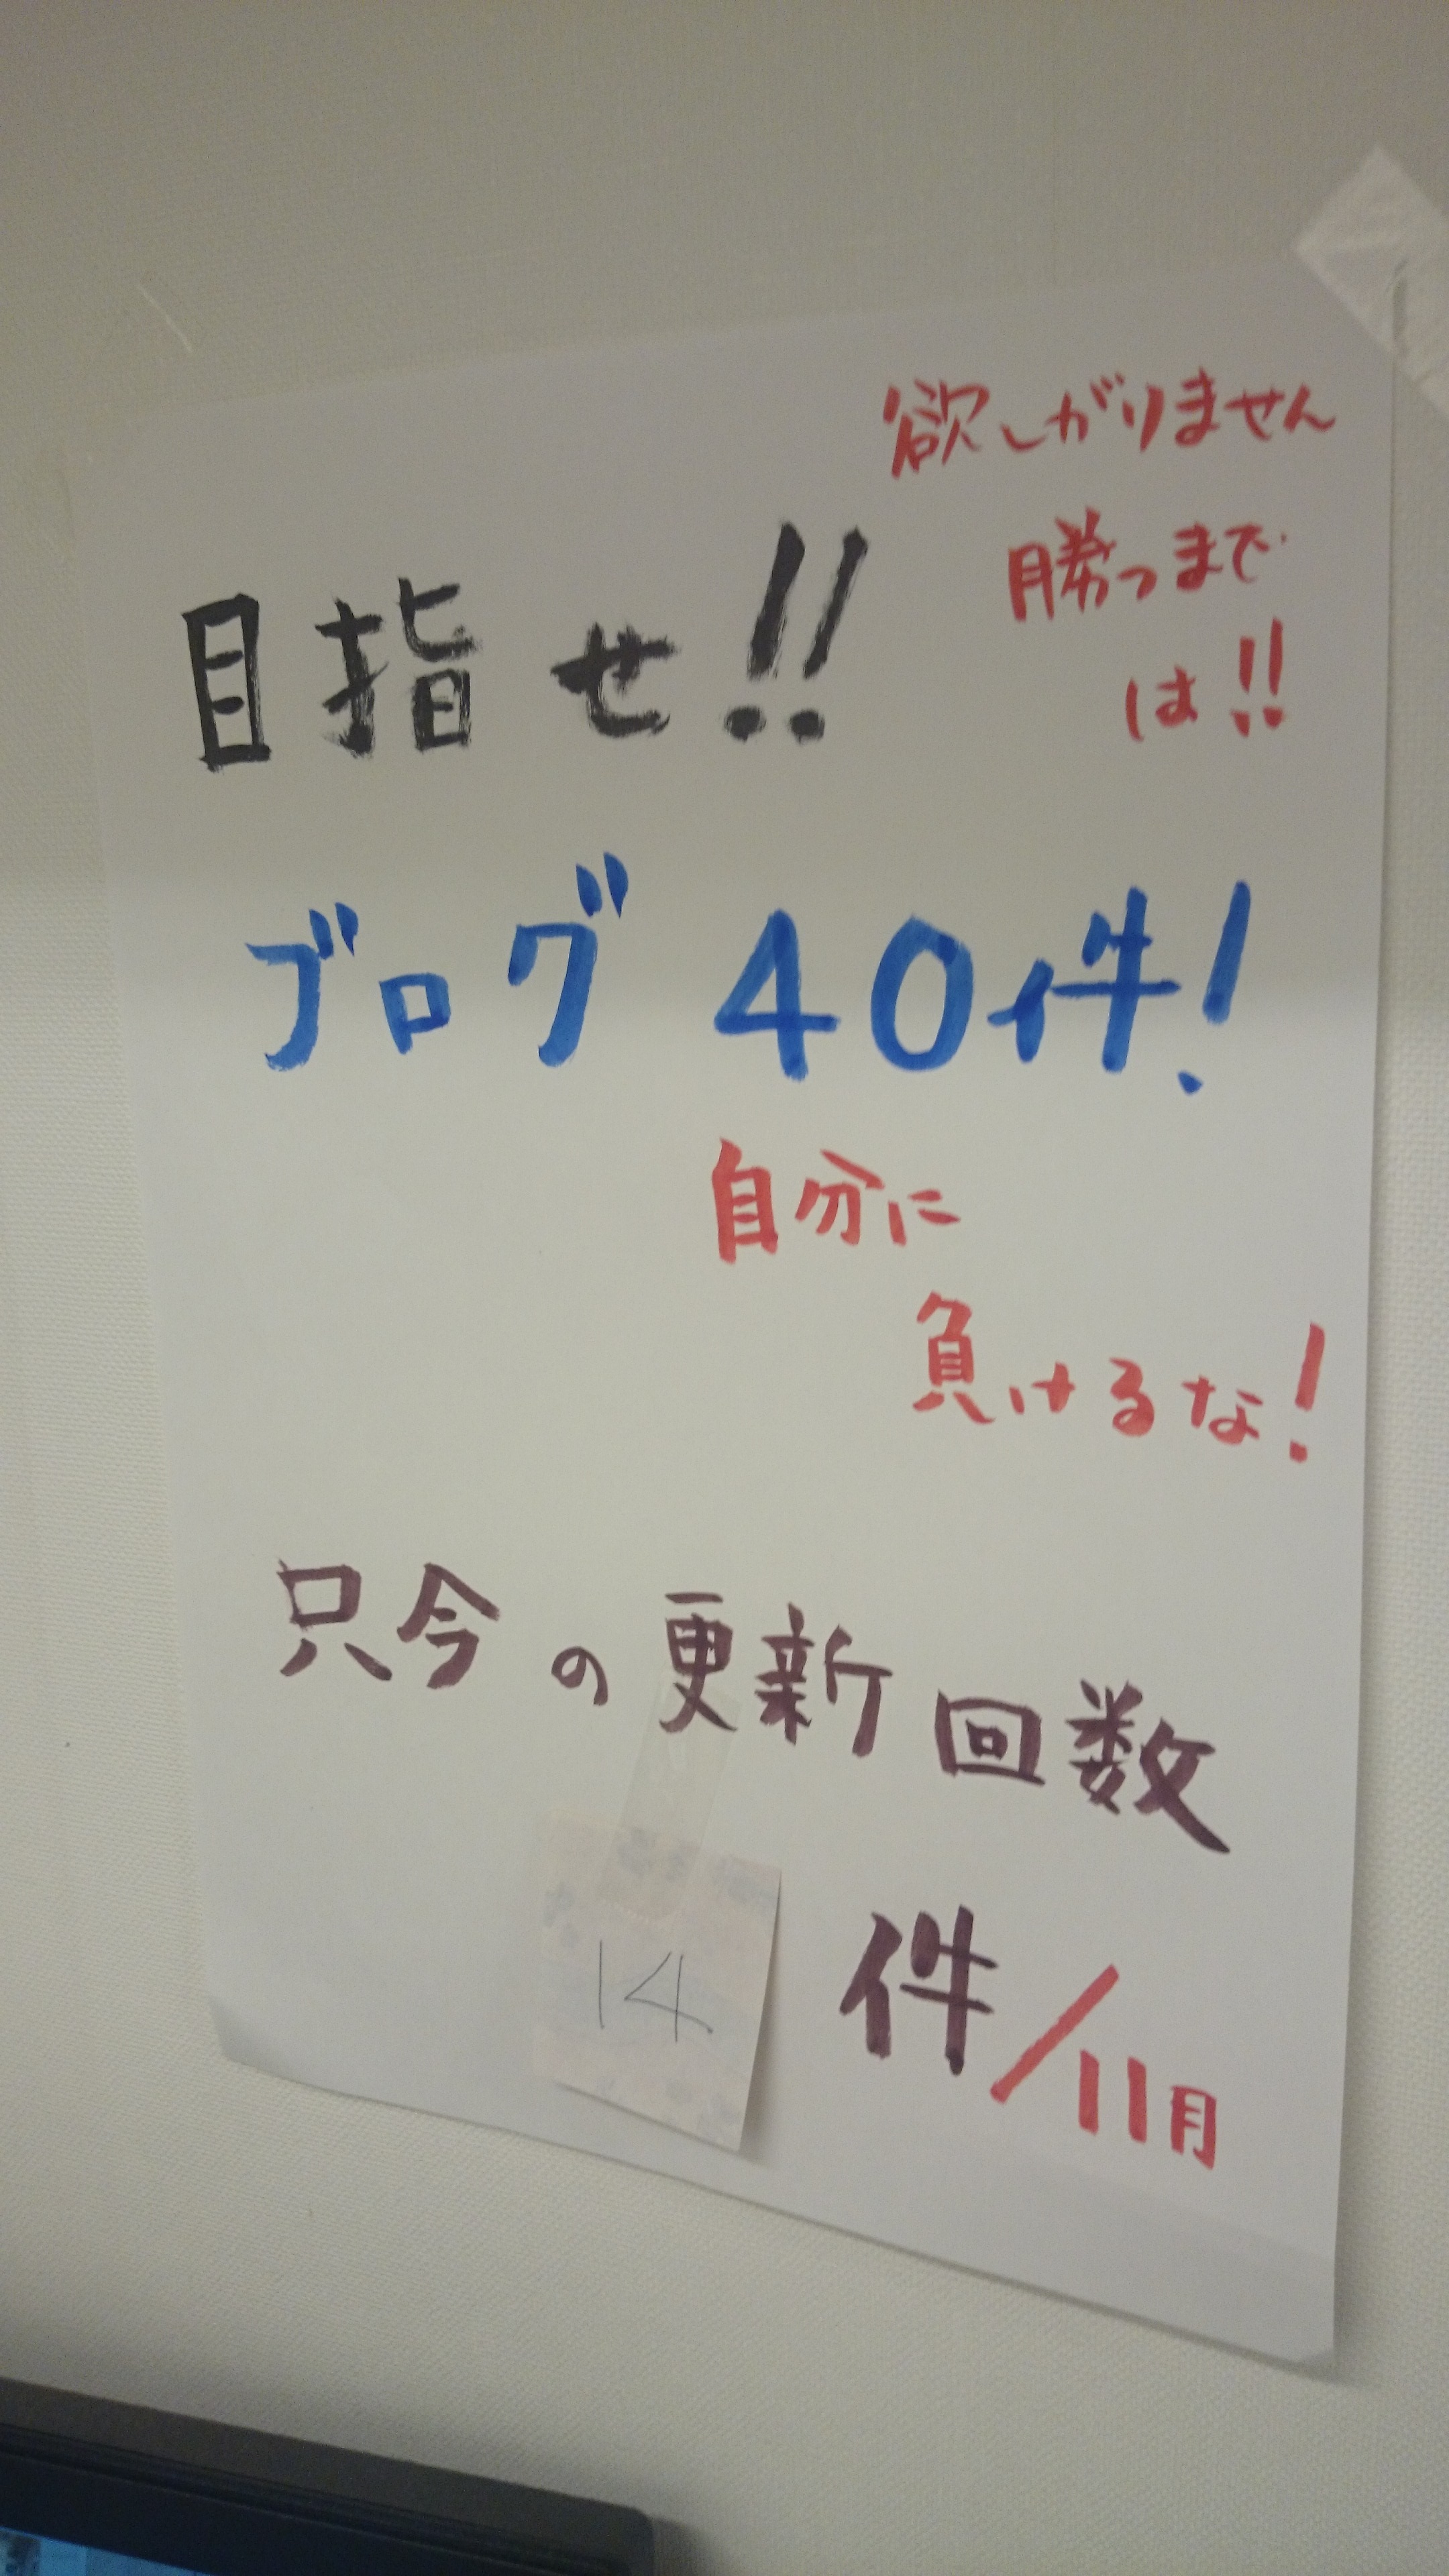 欲しがりません
勝つまで
は!!
目指せ!!
ブログ 40件!
自分に
負けるな!
只今の更新回数
14 件/11月